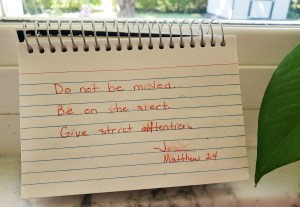 Do not be misled.
Be on the alert.
Give strict attention.
Matthew 24